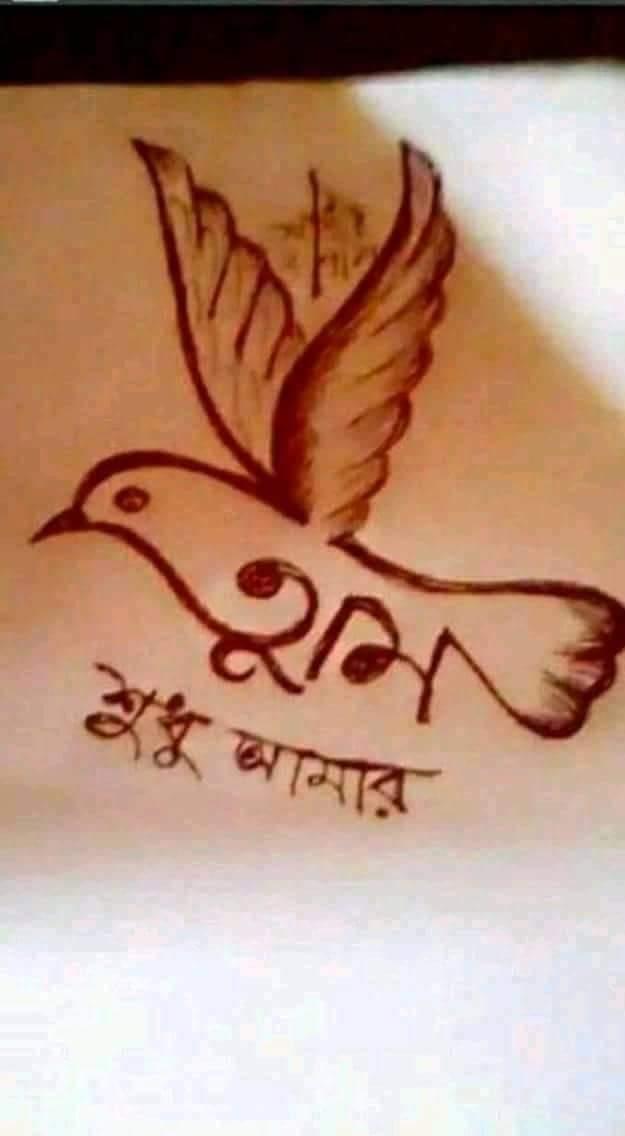 তুমি
শুধু আমার